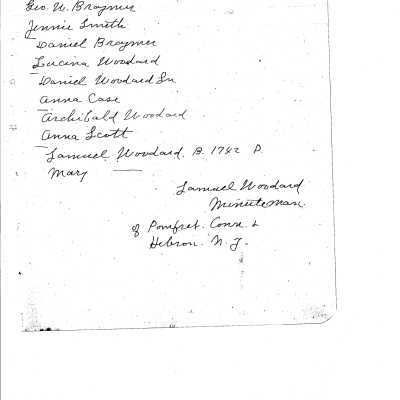 Geo. W. Braymer
Jennie Smith
Daniel Braymer
Lucina Woodard
Daniel Woodard Sr
Anna Case
Archibald Woodard
Anna Scott
Samuel Woodard. B. 1742 P.
Mary
Samuel Woodard
Minuteman.
of Pomfret. Conn. &
Hebron. N. Y.